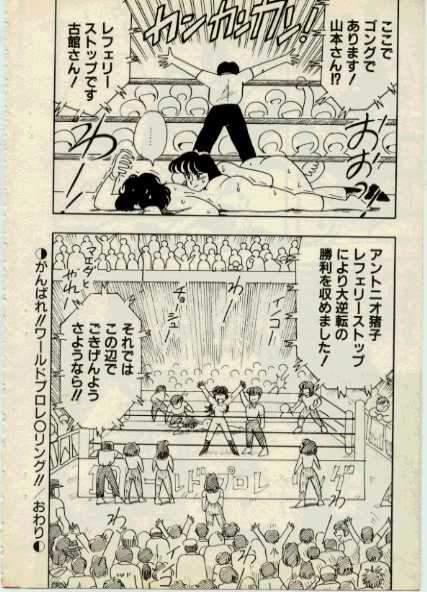 ここで
ゴングで
あります!
山本さん!?
カンカンカン!
レフェリー
ストップです
古館さん!
おお?
わー
……
アントニオ猪子
レフェリーストップ
により大逆転の
勝利を収めました!
イノコー
チョーシュー
マエダと
やれー
それでは
この辺で
ごきげんよう
さようなら!!
ワールドプロレ
わー
わー
イノコー
がんばれ!!ワールドプロレ○リング!!/おわり